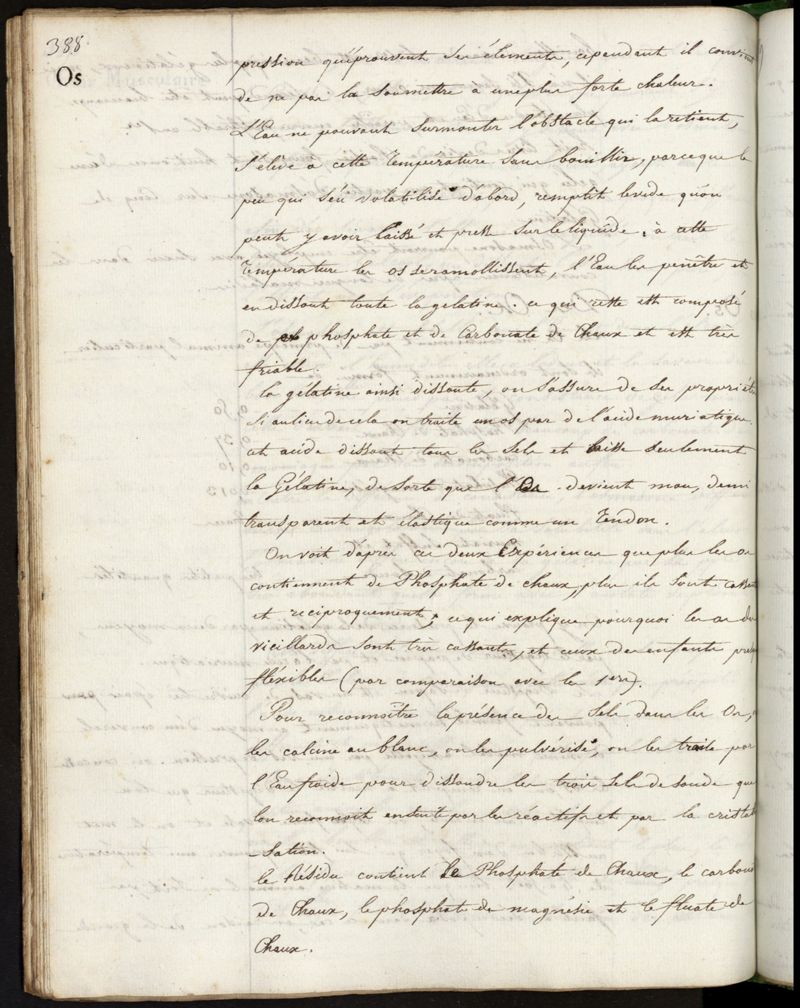 388.
Os
pression qu'éprouvent ses élements, cependant il convient
de ne pas la soumettre a une plus forte chaleur.
L'Eau ne pouvant surmonter l'obstacle qui la retient,
s'élève a cette Temperature sans bouillir, parceque le
peu qui s'en volatilise d'abord, remplit le vide qu'on
peut y avoir laissé et presse sur le liquide; à cette
température les os se ramollissent, l'Eau les penêtre et
en dissout toute la gelatine. ce qui reste est composé
de phosphate et de Carbonate de Chaux et est très
friable.
la gélatine ainsi dissoute, on s'assure de ses propriétés
Si au lieu de cela on traite un os par de l'acide muriatique
cet acide dissout tous les Sels et laisse seulement
la Gélatine, de sorte que l'Os devient mou, demi
transparent et élastique comme un Tendon.
On voit d'après ces deux Expériences que plus les os
contiennent de Phosphate de chaux, plus ils sont cassants
et reciproquement; ce qui explique pourquoi les os des
vieillards sont très cassants, et ceux des enfants presque
fléxibles (par comparaison avec les 1ers).
Pour reconnoître la présence des Sels dans les Os,
les calcine au blanc, on les pulvérise, on les traite par
l'Eau froide pour dissoudre les trois Sels de soude que
l'on reconnoit ensuite par les réactifs et par la cristal
-sation.
le Résidu contient le Phosphate de Chaux, le carbonate
de Chaux, le phosphate de magnésie et le fluate de
Chaux.